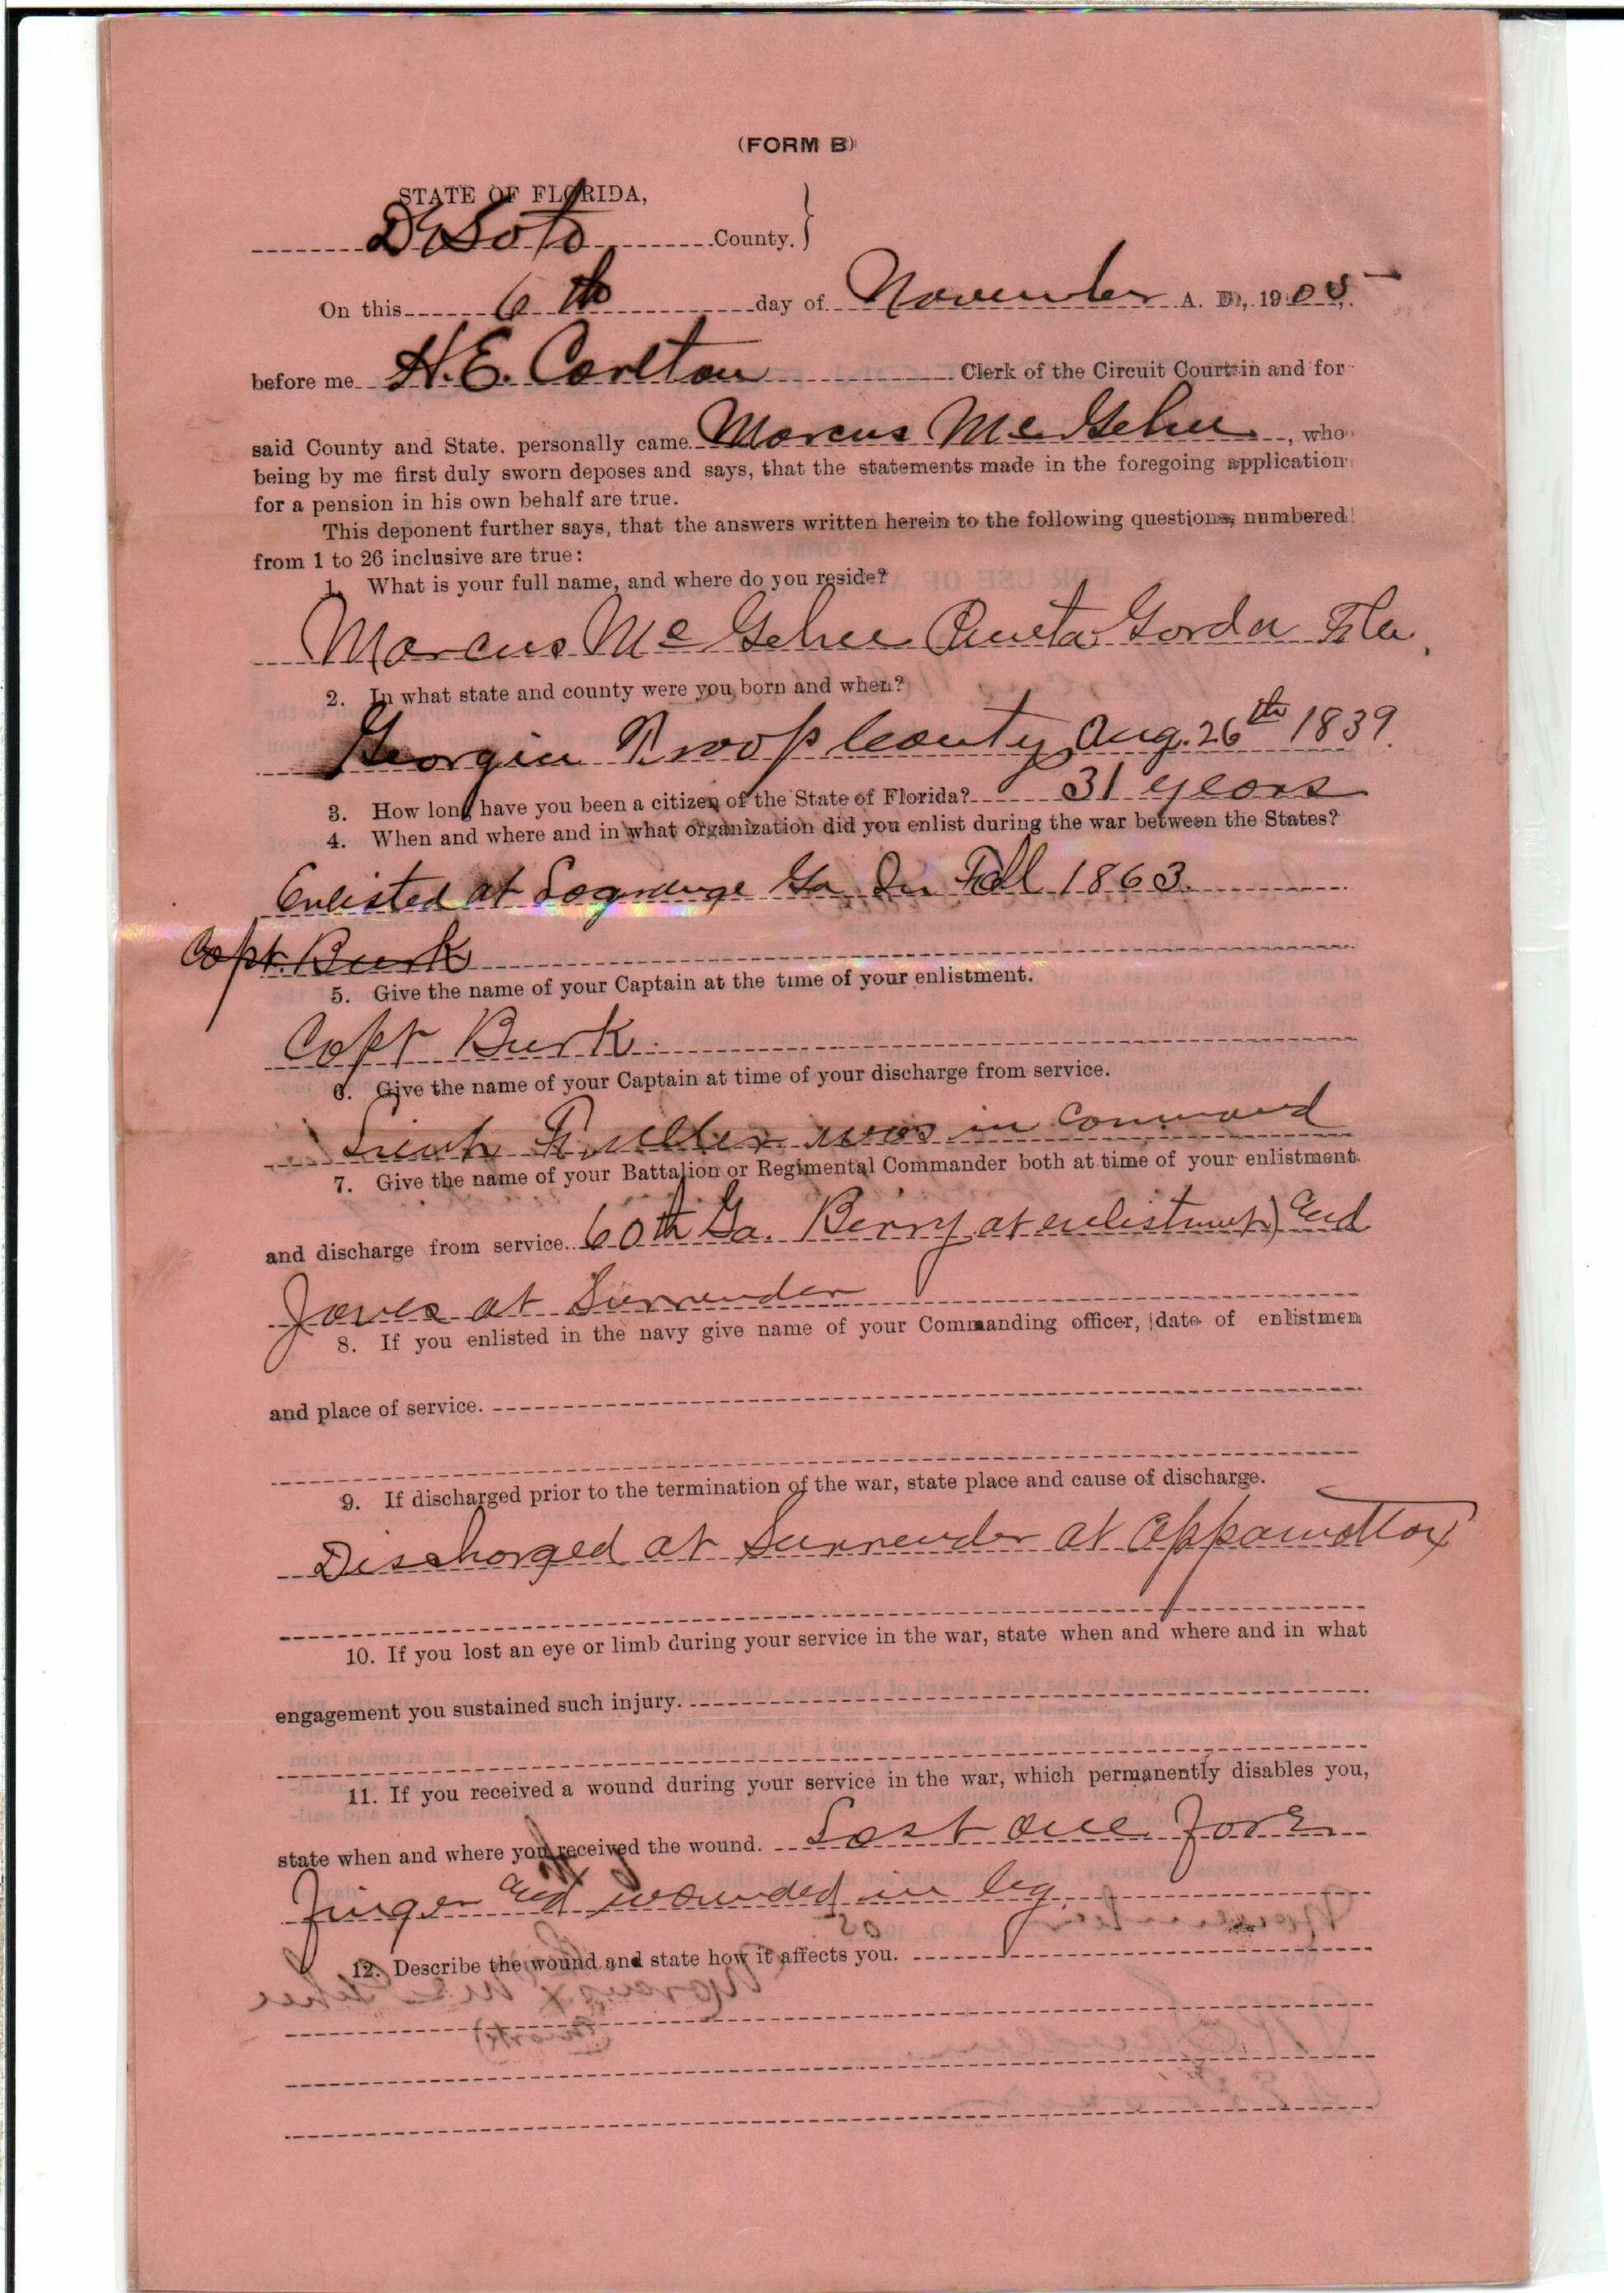 (FORM B)
STATE OF FLORIDA,
DeSoto County.
On this 6th day of November A. D., 1905.
before me H.E. Carlton Clerk of the Circuit Court in and for
said County and State, personally came Marcus McGehee, who
being by me first duly sworn deposes and says, that the statements made in the foregoing application
for a pension in his own behalf are true.
This deponent further says, that the answers written herein to the following questions, numbered
from 1 to 26 inclusive are true:
1. What is your full name, and where do you reside?
Marcus McGehee Punta Gorda Fla.
2. In what state and county were you born and when?
Georgia Troop County Aug. 26th 1839.
3. How long have you been a citizen of the State of Florida? 31 years
4. When and where and in what organization did you enlist during the war between the States?
Enlisted at Lagrange Ga In Fall 1863.
Capt. Burk
5. Give the name of your Captain at the time of your enlistment.
Capt Burk.
6. Give the name of your Captain at time of your discharge from service.
Lieut Fuller was in command
7. Give the name of your Battalion or Regimental Commander both at time of your enlistment
and discharge from service. 60th Ga. Berry at enlistment) and
Jones at Surrender
8. If you enlisted in the navy give name of your Commanding officer, date of enlistmen
and place of service.
9. If discharged prior to the termination of the war, state place and cause of discharge.
Discharged at Surrender at Appamottox
10. If you lost an eye or limb during your service in the war, state when and where and in what
engagement you sustained such injury.
11. If you received a wound during your service in the war, which permanently disables you,
state when and where you received the wound. Lost one fore
finger and wounded in leg.
12. Describe the wound and state how it affects you.